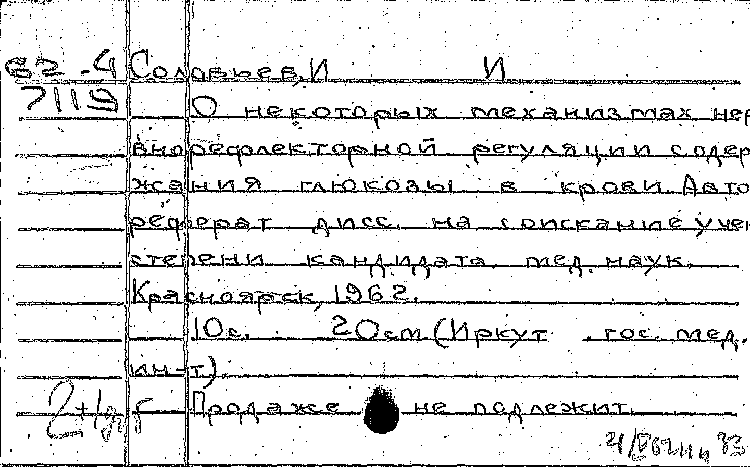 62-4 Соловьев, И И
7119 О некоторых механизмах нер
внорефлекторной регуляции содер
жания глюкозы в крови. Авто
реферат дисс. на соискание учен
степени кандидата мед. наук.
Красноярск, 1962.
10 с. 20 см (Иркут гос. мед.
ин-т)
Продаже не подлежит.